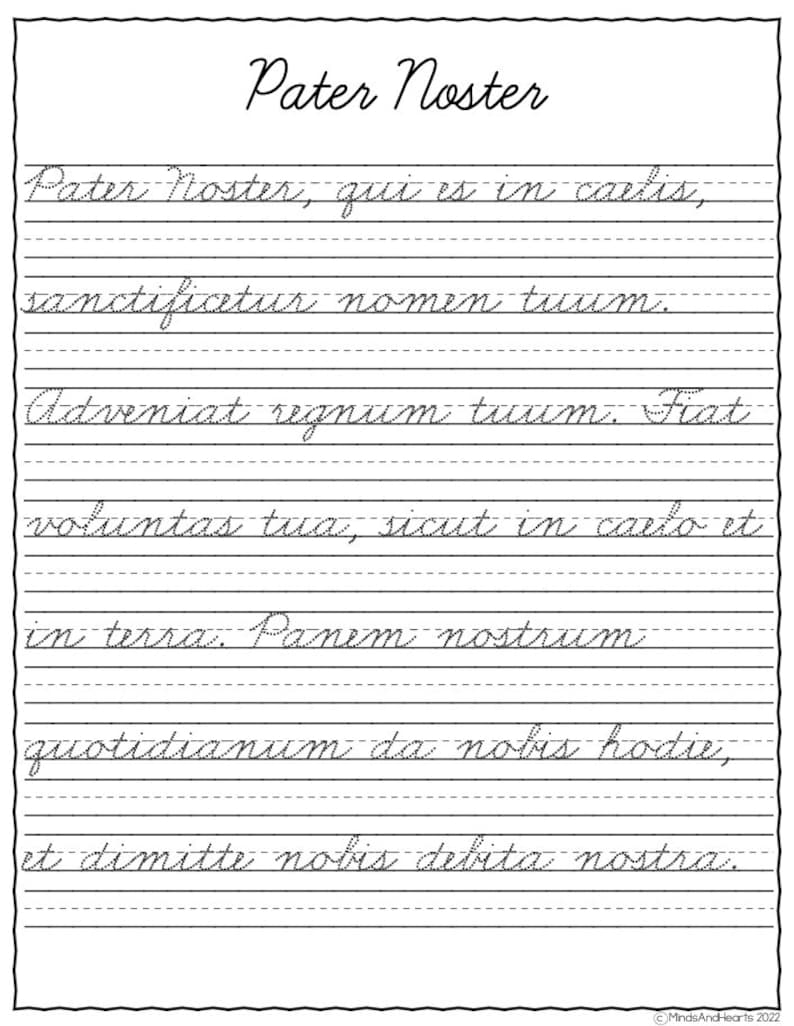 Pater Noster
Pater Noster, qui es in caelis,
sanctificetur nomen tuum.
Adveniat regnum tuum. Fiat
voluntas tua, sicut in caelo et
in terra. Panem nostrum
quotidianum da nobis hodie,
et dimitte nobis debita nostra.
©MindsAndHearts 2022